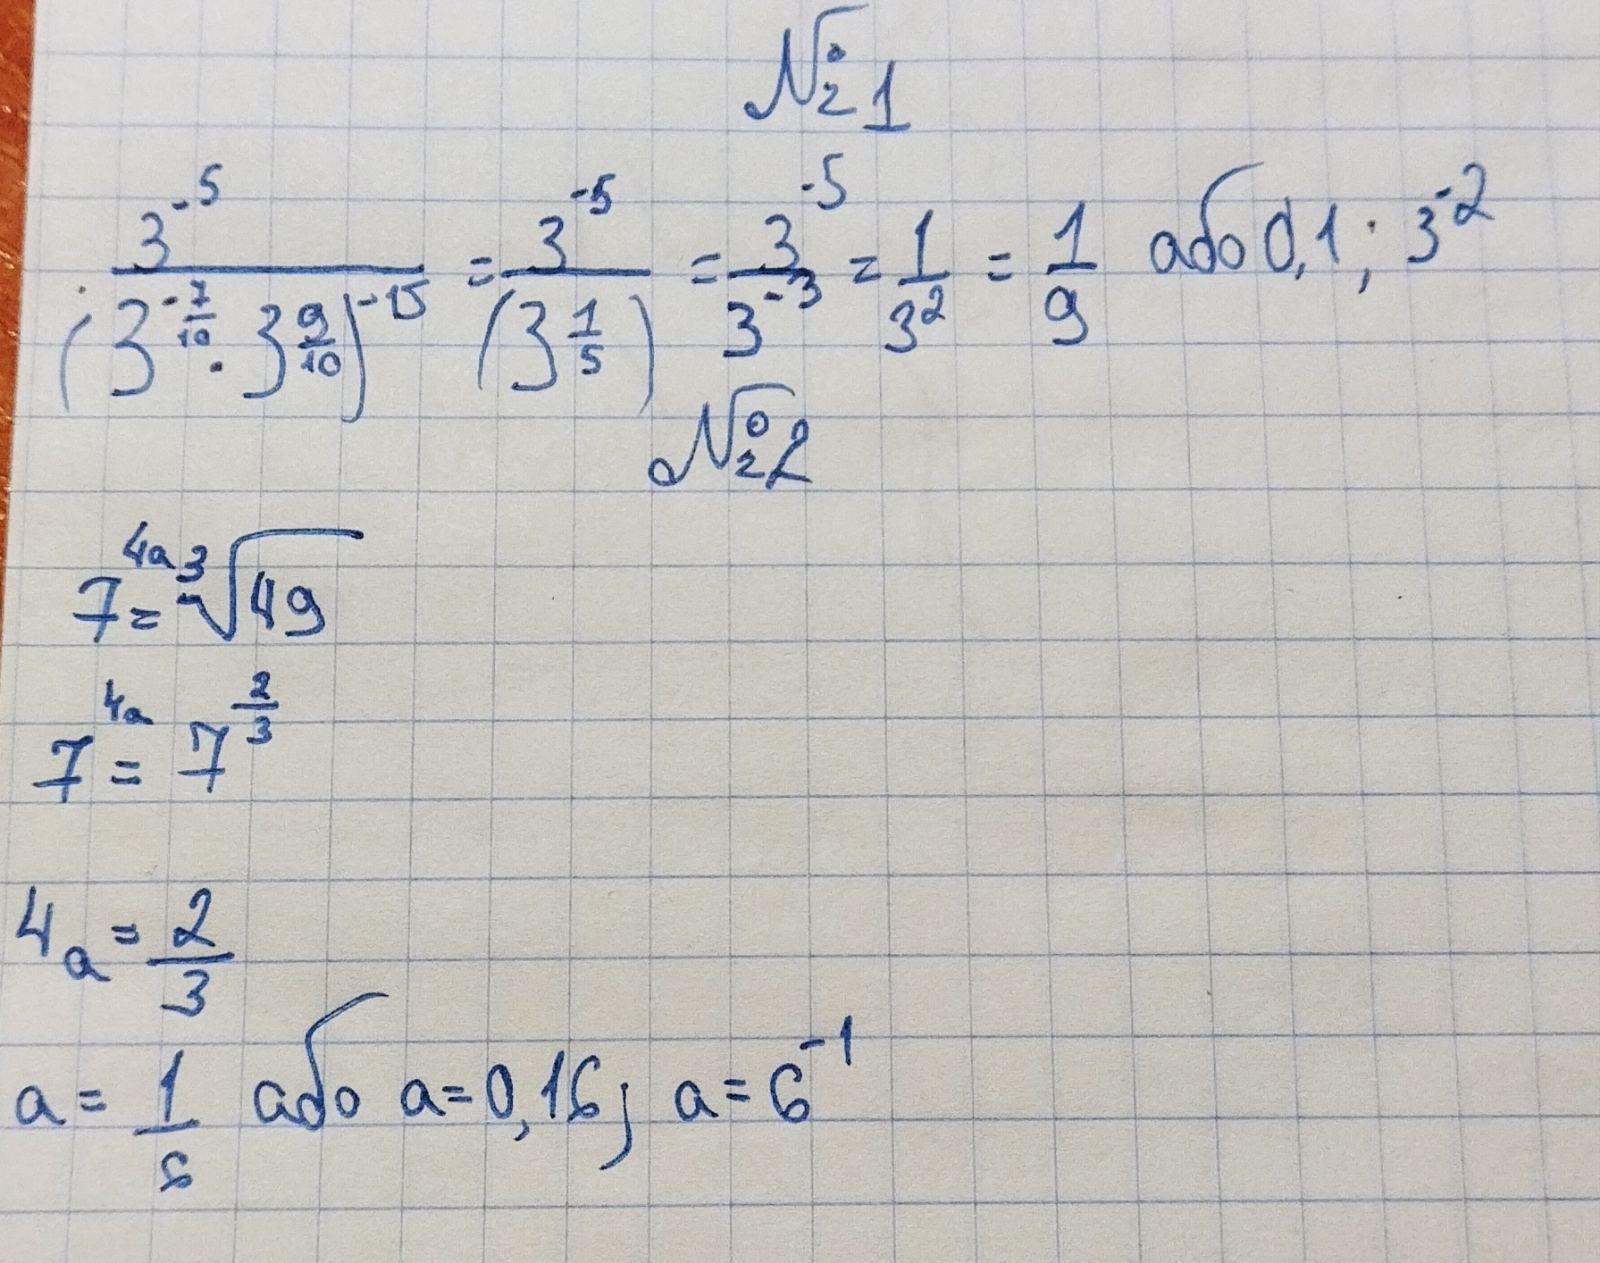 №1
3^{-5} / (3^{-7/10} · 3^{9/10})^{-15} = 3^{-5} / (3^{1/5}) = 3^{-5} / 3^{-3} = 1/3^2 = 1/9 або 0,1; 3^{-2}
№2
7^{4a} = ∛49
7^{4a} = 7^{2/3}
4a = 2/3
a = 1/6 або a = 0,16; a = 6^{-1}